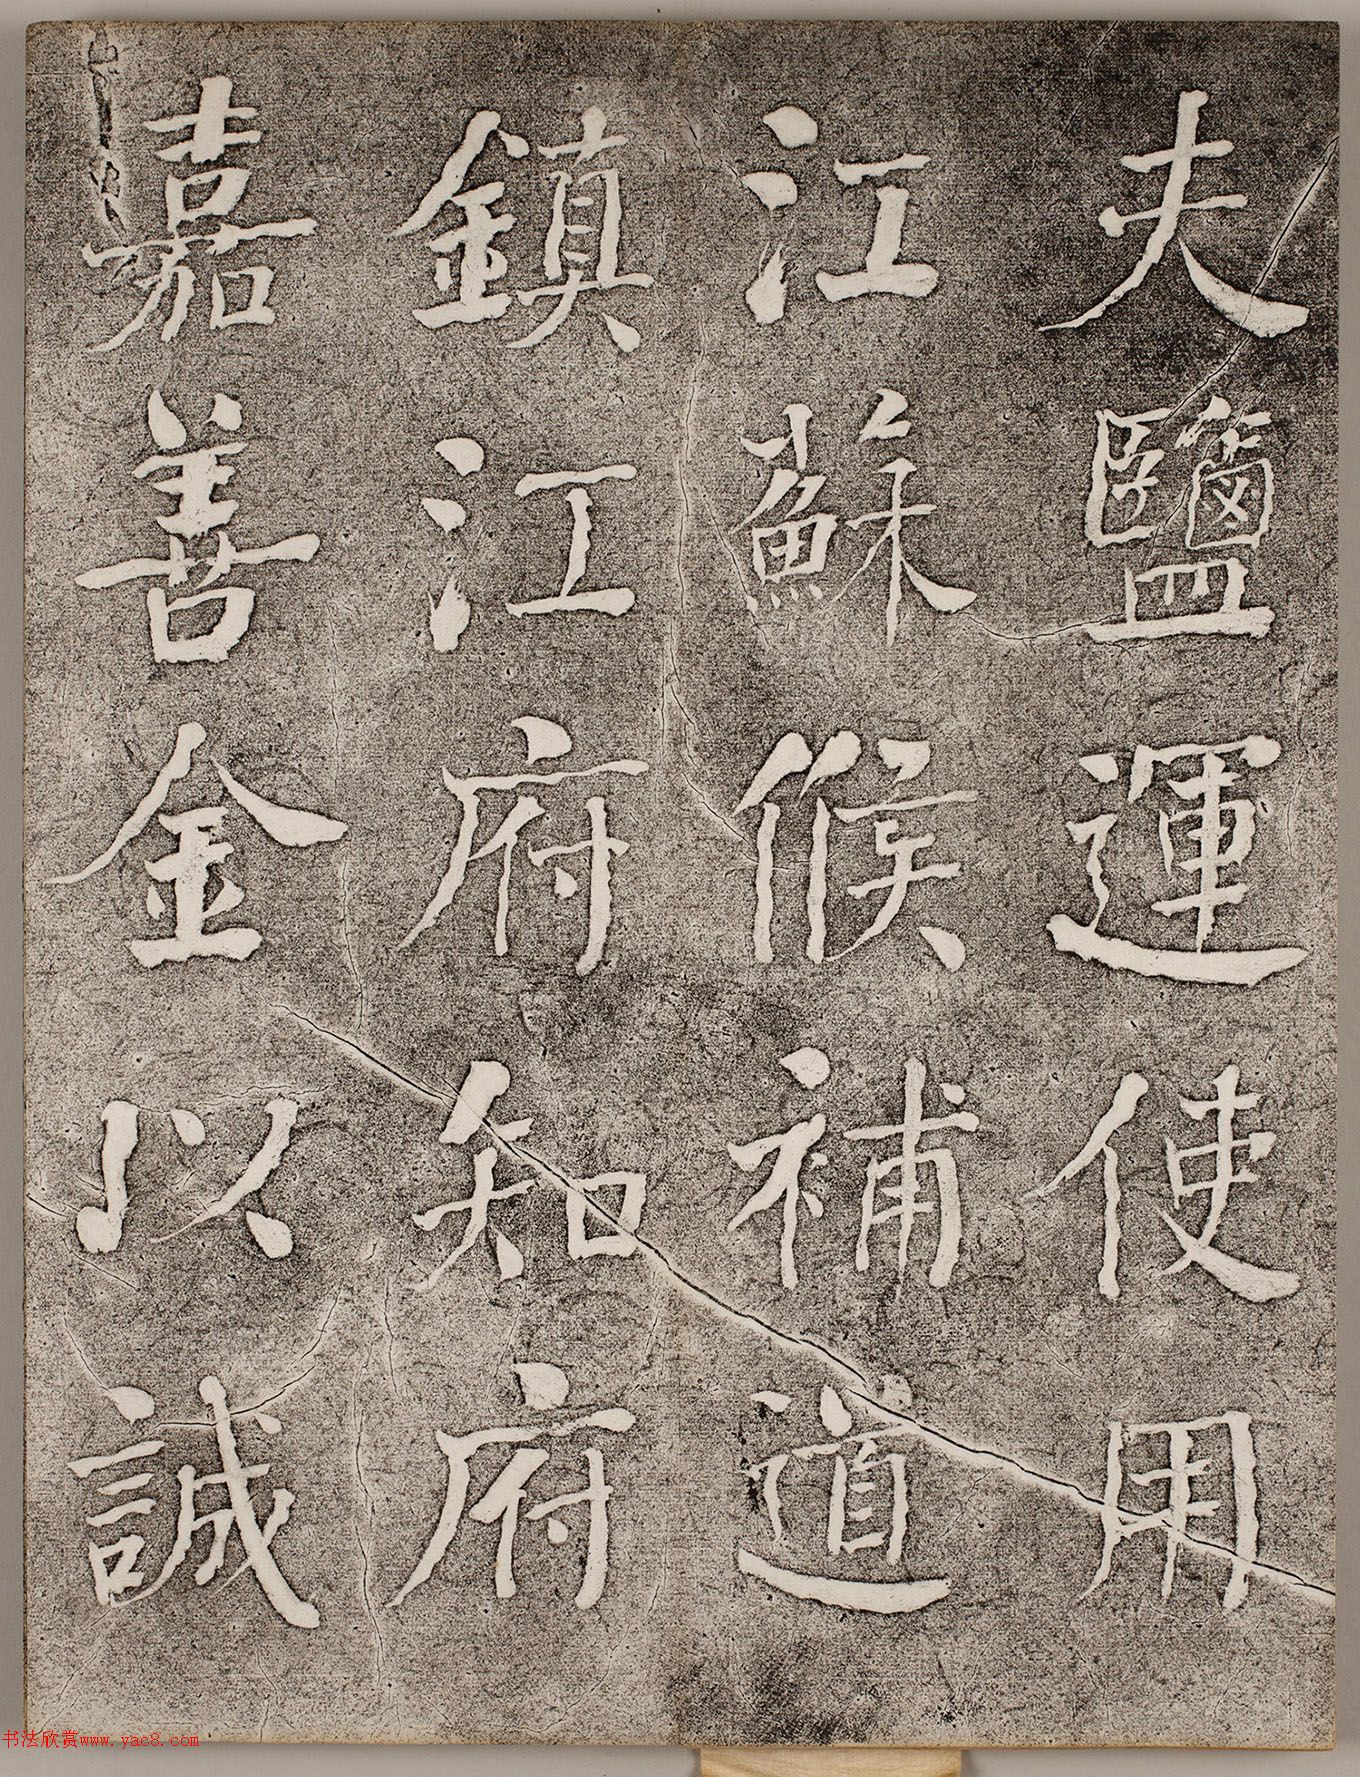 夫鹽運使用
江蘇候補道
鎮江府知府
嘉善金以誠
书法欣赏www.yac8.com